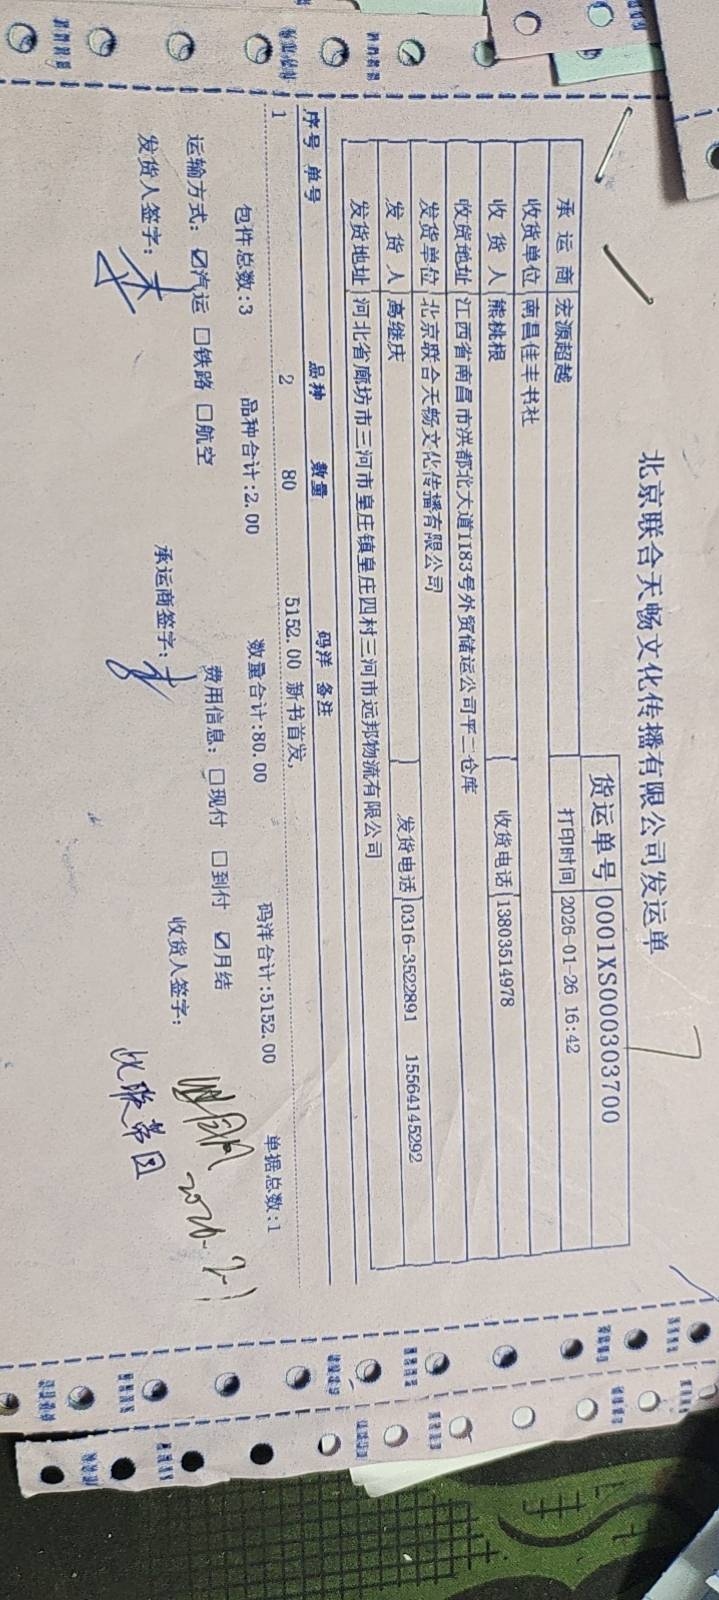 北京联合天畅文化传播有限公司发运单
货运单号 0001XS000303700
承运商 宏源超越 打印时间 2026-01-26 16:42
收货单位 南昌佳丰书社
收货人 熊桃根 收货电话 13803514978
收货地址 江西省南昌市洪都北大道1183号外贸储运公司平二仓库
发货单位 北京联合天畅文化传播有限公司
发货人 高继庆 发货电话 0316-3522891 15564145292
发货地址 河北省廊坊市三河市皇庄镇皇庄四村三河市远邦物流有限公司
序号 单号 品种 数量 码洋 备注
1 2 80 5152.00 新书首发,
包件总数:3 品种合计:2.00 数量合计:80.00 码洋合计:5152.00 单据总数:1
运输方式: ☑汽运 □铁路 □航空 费用信息: □现付 □到付 ☑月结
发货人签字: 承运商签字: 收货人签字:
2026.2.1